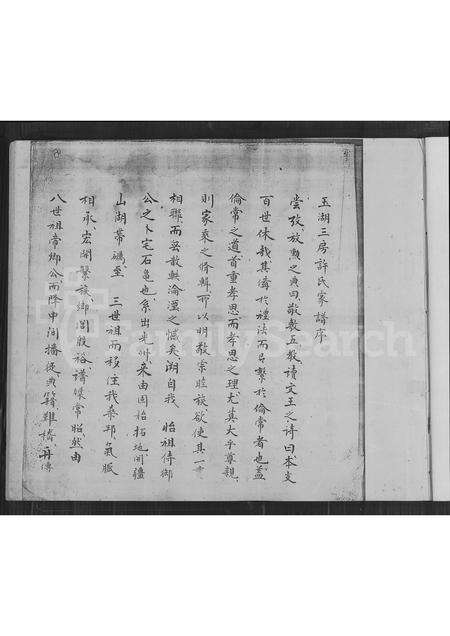 玉湖三房許氏家譜序
嘗攷放勲之典曰敬敷五教讀文王之詩曰本支
百世休哉其儔於禮法而昌繫於倫常者也蓋
倫常之道首重孝思而孝思之理尤莫大乎尊親
則家乘之脩輯所以明敬宗睦族欲使其一
相聯而無散無淪湮之憾矣湖自我 始祖侍御
公之卜定石龜也系出光州來由固始拓地開疆
山湖帶礪至 三世祖而移江我基 氣脈
相承宏開繁族鄉閭殷裕譜牒常昭然由
八世祖常卿公而降中間播從典籍難稽 傳
FamilySearch